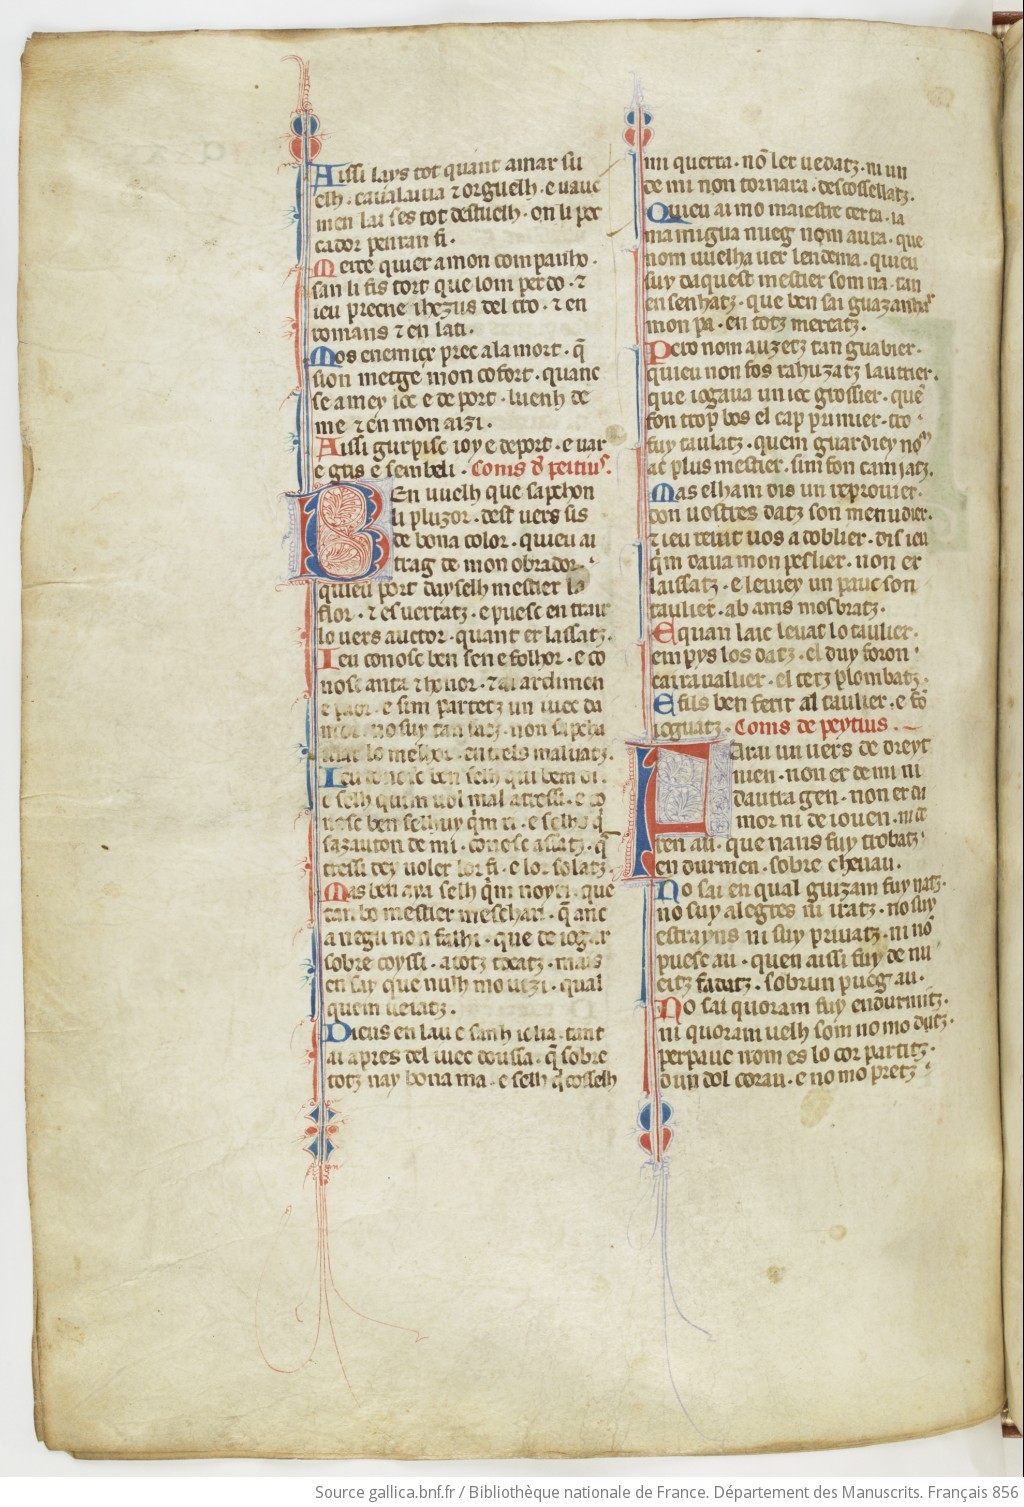 Aissi lays tot quant amar su
elh. caualaria ⁊ orguelh. e uauc
men lai ses tot destuelh. on li pec
cador penran fi.
Merce quier amon companho.
san li fis tort que lom perdo. ⁊
ieu precne ihezus del tro. ⁊ en
romans ⁊ en lati.
Mos enemicx prec ala mort. q̃
sion metge mon cofort. quanc
se amey ioc e deport. luenh de
me ⁊ en mon aizi.
Aissi gurpisc ioy e deport. e uar
e gris e sembeli. Coms d̃ peitius.
BEn uuelh que sapchon
li pluzor. dest uers sis
de bona color. quieu ai
trag de mon obrador.
quieu port dayselh mestier la
flor. ⁊ es uertatz. e puesc en traire
lo uers auctor. quant er lassatz.
Ieu conosc ben sen e folhor. e co
nosc anta ⁊ honor. ⁊ ai ardimen
e paor. e sim partetz un iuec da
mor. no suy tan fatz. non sapcha
triar lo melhor. entrels maluatz.
Ieu conosc ben selh qui bem di.
e selh quim uol mal atressi. e co
nosc ben selhuy q̃m ri. e selho q̃
sazauton de mi. conosc assatz. q̃
tressi dey uoler lor fi. e lor solatz.
Mas ben aya selh q̃m noyri. que
tan bo mestier meschari. q̃ anc
a negu non falhi. que de iogar
sobre coyssi. a totz tocatz. mais
en say que nulh mo uezi. qual
quem ueiatz.
Dieus en lau e sanh iolia. tant
ai apres del iuec doussa. q̃ sobre
totz nay bona ma. e selh q̃ cosselh
mi querra. nõ ler uedatz. ni un
de mi non tornara. descossellatz.
Quieu ai mo maiestre certa. ia
ma migua nueg nom aura. que
nom uuelha uer lendema. quieu
suy daquest mestier som ua. tan
ensenhatz. que ben sai guazanhar
mon pa. en totz mercatz.
Pero nom auzetz tan guabier.
quieu non fos rahuzatz lautrier.
que iogaua un ioc grossier. quem
fon trop bos el cap primier. tro
fuy taulatz. quem guardiey nom
ac plus mestier. sim fon camiatz.
Mas elham dis un reprouier.
don uostres datz son menudier.
⁊ ieu reuit uos a doblier. dis ieu
q̃m daua monpeslier. non er
laissatz. e leuiey un pauc son
taulier. ab ams mosbratz.
E quan laic leuat lo taulier.
empys los datz. el duy foron
cairauallier. el tertz plombatz.
E fils ben ferir al taulier. e fõ
ioguatz. Coms de peytius.
FArai un uers de dreyt
nien. non er de mi ni
dautra gen. non er da
mor ni de iouen. ni de
ren au. que nans fuy trobatz
en durmen. sobre cheuau.
No sai en qual guizam fuy natz.
no suy alegres ni iratz. no suy
estrayns ni suy priuatz. ni nõ
puesc au. quen aissi fuy de nu
eitz fadatz. sobrun pueg au.
No sai quoram fuy endurmitz.
ni quoram uelh som no mo ditz.
per pauc nom es lo cor partitz.
dun dol corau. e no mo pretz
Source gallica.bnf.fr / Bibliothèque nationale de France. Département des Manuscrits. Français 856